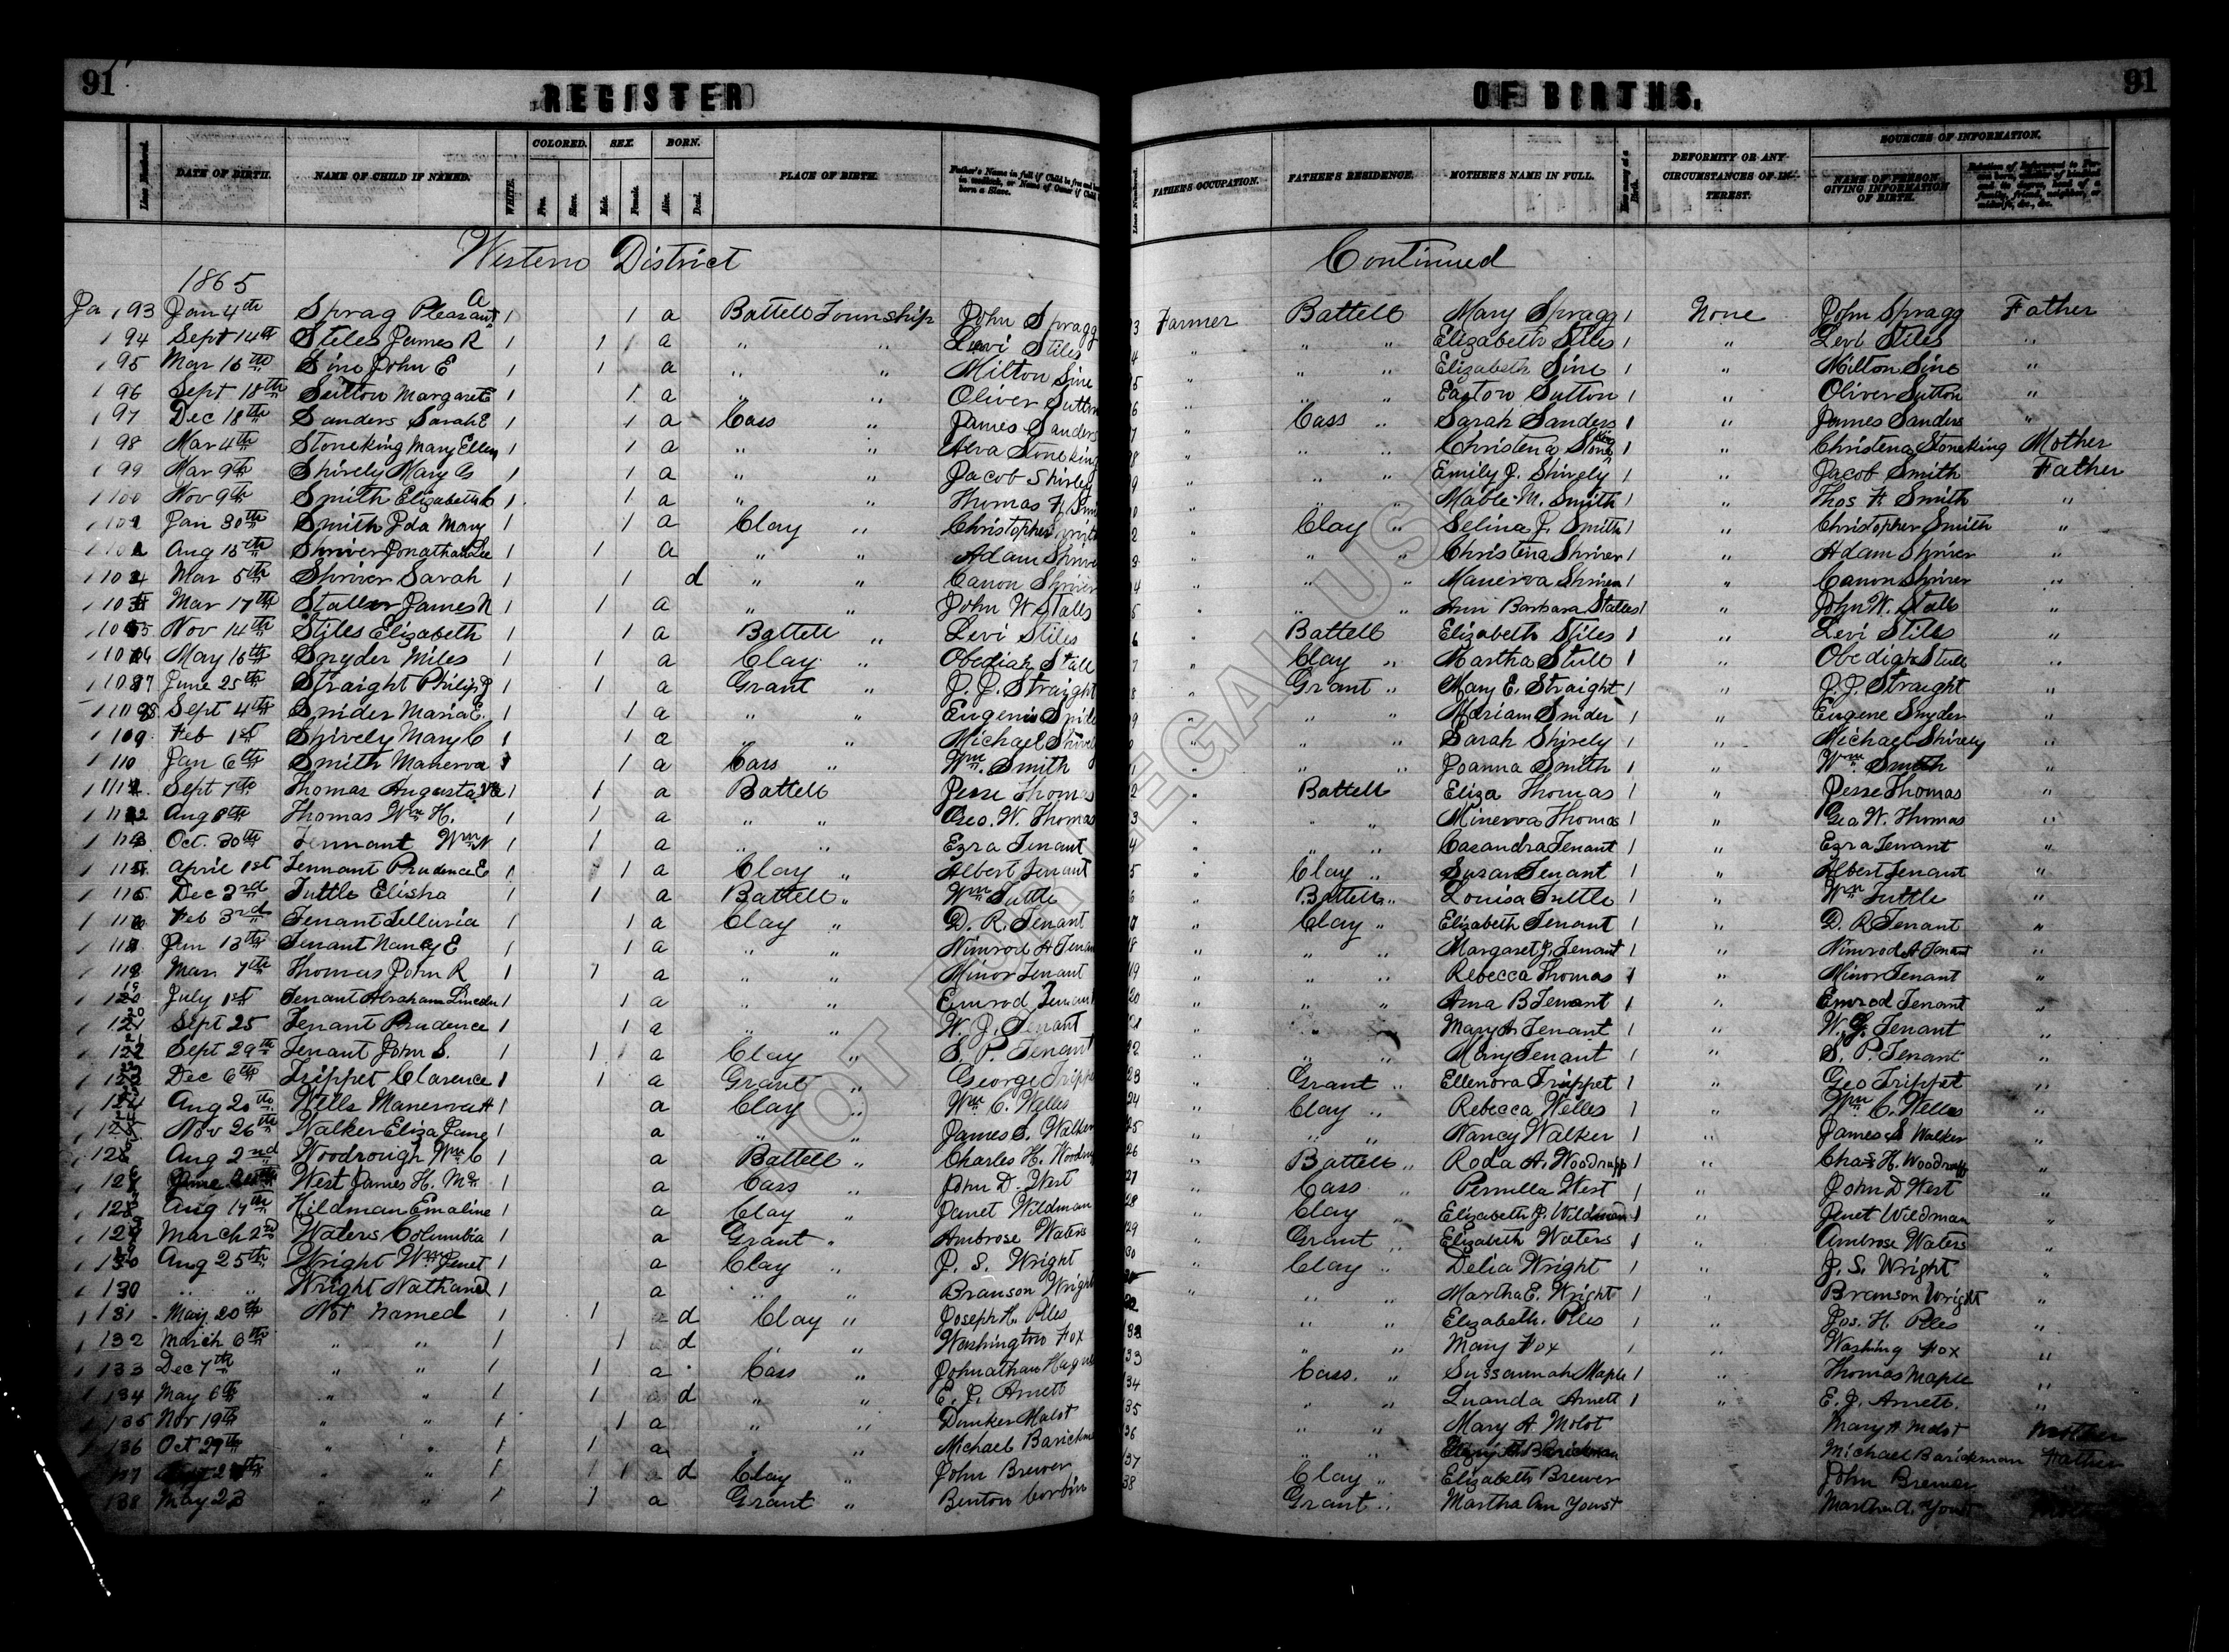 91 REGISTER OF BIRTHS. 91
Line Numbered. DATE OF BIRTH. NAME OF CHILD IF NAMED. WHITE. COLORED. Free. Slave. SEX. Male. Female. BORN. Alive. Dead. PLACE OF BIRTH. Father's Name in full if Child is free and born in wedlock, or Name of Owner if Child born a Slave. FATHER'S OCCUPATION. FATHER'S RESIDENCE. MOTHER'S NAME IN FULL. How many at a Birth. DEFORMITY OR ANY CIRCUMSTANCES OF INTEREST. SOURCES OF INFORMATION. NAME OF PERSON GIVING INFORMATION OF BIRTH.
Western District Continued
1865
93 Jan 4th Sprag Pleasant A 1 1 a Battell Township John Spragg Farmer Battell Mary Spragg 1 None John Spragg Father
94 Sept 14th Stiles James R 1 1 a " " Levi Stiles " " " Elizabeth Stiles 1 " Levi Stiles "
95 Mar 16th Sine John E 1 1 a " " Milton Sine " " " Elizabeth Sine 1 " Milton Sine "
96 Sept 18th Sutton Margaret E 1 1 a " " Oliver Sutton " " " Easton Sutton 1 " Oliver Sutton "
97 Dec 18th Sanders Sarah E 1 1 a Cass " James Sanders " Cass " Sarah Sanders 1 " James Sanders "
98 Mar 4th Stoneking Mary Ellen 1 1 a " " Alva Stoneking " " " Christena Stoneking 1 " Christena Stoneking Mother
99 Mar 9th Shively Mary C 1 1 a " " Jacob Shirley " " " Emily J. Shively 1 " Jacob Smith Father
100 Nov 9th Smith Elizabeth C 1 1 a " " Thomas F. " " " Mable M. Smith 1 " Thos F. Smith "
Jan 30th Smith Ida Mary 1 1 a Clay " Christopher Smith " Clay " Selina J. Smith 1 " Christopher Smith "
Aug 15th Shriver Jonathan Lee 1 1 a " " Adam " " " Christena Shriver 1 " Adam Shriver "
Mar 5th Shriver Sarah 1 1 d " " Canon Shriver " " " Manerva Shriver 1 " Canon Shriver "
Mar 17th Staller James N 1 1 a " " John W Stalls " " " Ann Barbara Stalles 1 " John W. Stalls "
Nov 14th Stiles Elizabeth 1 1 a Battell " Levi Stiles " Battell Elizabeth Stiles 1 " Levi Stiles "
May 16th Snyder Miles 1 1 a Clay " Obediah Stull " Clay " Martha Stull 1 " Obediah Stull "
June 25th Straight Philip J 1 1 a Grant " J. J. Straight " Grant " Mary E. Straight 1 " J. J. Straight "
Sept 4th Snider Maria E. 1 1 a " " Eugenis " " " Mariam Snider 1 " Eugene Snyder "
109 Feb 1st Shively Mary C 1 1 a " " Michael Shively " " " Sarah Shively 1 " Michael Shively "
110 Jan 6th Smith Manerva 1 1 a Cass " Wm. Smith " " " Joanna Smith 1 " Wm. Smith "
Sept 7th Thomas Augusta 1 1 a Battell Jesse Thomas " Battell Eliza Thomas 1 " Jesse Thomas "
Aug 8th Thomas Wm H. 1 1 a " " Geo. W. Thomas " " " Minerva Thomas 1 " Geo W. Thomas "
Oct. 30th Tennant Wm N 1 1 a " " Ezra Tenant " " " Casandra Tenant 1 " Ezra Tenant "
April 1st Tennant Prudence E 1 1 a Clay " Albert Tenant " Clay " Susan Tenant 1 " Albert Tenant "
115 Dec 3rd Tuttle Elisha 1 1 a Battell " Wm Tuttle " Battell " Louisa Tuttle 1 " Wm Tuttle "
116 Feb 3rd Tenant Telluria 1 1 a Clay " D. R. Tenant " Clay " Elizabeth Tenant 1 " D. R. Tenant "
Jan 13th Tenant Nancy E 1 1 a " " Nimrod A Tenant " " " Margaret J. Tenant 1 " Nimrod A Tenant "
Mar 7th Thomas John R 1 1 a " " Minor Tenant " " " Rebecca Thomas 1 " Minor Tenant "
July 1st Tenant Abraham Lincoln 1 1 a " " Emrod Tenant " " " Ama B Tenant 1 " Emrod Tenant "
Sept 25 Tenant Prudence 1 1 a " " W. J. Tenant " " " Mary A Tenant 1 " W. J. Tenant "
Sept 29th Tenant John S. 1 1 a Clay " S. P. Tenant " " " Mary Tenant 1 " S. P. Tenant "
Dec 6th Trippet Clarence 1 1 a Grant " George Trippet " Grant " Ellenora Trippet 1 " Geo Trippet "
Aug 20th Wills Manerva A 1 a Clay " Wm C. Welles " Clay " Rebecca Welles 1 " Wm C. Welles "
Nov 26th Walker Eliza Jane 1 a " " James S. Walker " " " Nancy Walker 1 " James S Walker "
Aug 2nd Woodrough Wm C 1 a Battell " Charles H. " Battell " Roda A. Woodrupp 1 " Chas H. Woodruff "
June West James H. Mc 1 a Cass " John D. West " Cass " Permella West 1 " John D West "
Aug 14th Wildman Emaline 1 a Clay " Janet Wildman " Clay " Elizabeth J. Wildman 1 " Jenet Wildman "
March 2nd Waters Columbia 1 a Grant " Ambrose Waters " Grant " Elizabeth Waters 1 " Ambrose Waters "
Aug 25th Wright Wm Jenet 1 a Clay " J. S. Wright " Clay " Delia Wright 1 " J. S. Wright "
130 " " Wright Nathaniel 1 a " " Branson Wright " " " Martha E. Wright 1 " Branson Wright "
131 May 20th Not Named 1 1 d Clay " Joseph H. Piles " " Elizabeth. Piles 1 " Jos. H. Piles "
132 March 6th " " 1 1 d Washington Fox " " Mary Fox 1 " Washing Fox "
133 Dec 7th " " 1 1 a Cass " Johnathan Cass. " Sussannah Maple 1 " Thomas Maple "
134 May 6th " " 1 1 d " " E. J. Arnett " " Luanda Arnett 1 " E. J. Arnett. "
135 Nov 19th " " 1 1 a " " Dunker Molst " " Mary A. Molot Mary A Molst Mother
136 Oct 29th " " 1 1 a " " Michael " " Michael Barickman Father
" " 1 1 1 d Clay " John Brewer Clay " Elizabeth Brewer John Brewer
138 May 23 " " 1 1 a Grant " Benton Corbin Grant " Martha Ann Youst Martha A. Youst
NOT FOR LEGAL USE